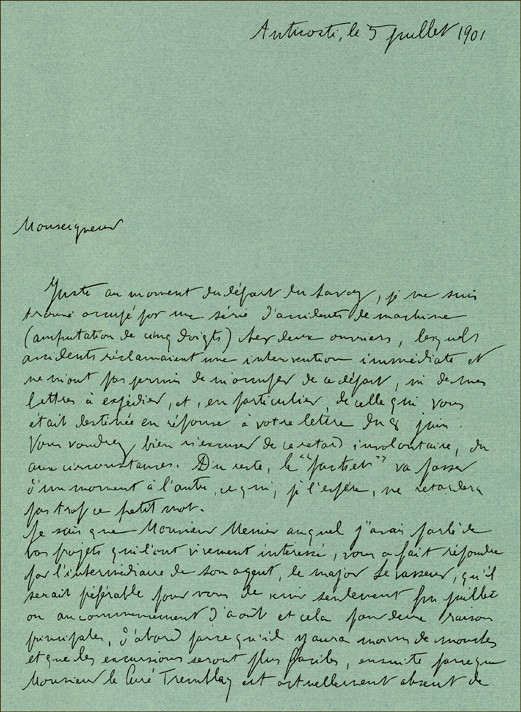 Anticosti, le 5 juillet 1901
Monseigneur
Juste au moment du départ du Savoy, je me suis
trouvé occupé par une série d'accidents de machine
(amputation de cinq doigts) chez deux ouvriers, lesquels
accidents réclamaient une intervention immédiate et
ne m'ont pas permis de m'occuper de ce départ, ni de mes
lettres à expédier, et, en particulier, de celle qui vous
était destinée en réponse à votre lettre du 8 juin.
Vous voudrez bien m'excuser de ce retard involontaire, dû
aux circonstances. Du reste, le va passer
d'un moment à l'autre, ce qui, je l'espère, ne retardera
pas trop ce petit mot.
Je sais que Monsieur Menier auquel j'avais parlé de
vos projets qui l'ont vivement intéressé, vous a fait répondre
par l'intermédiaire de son agent, le major Levasseur, qu'il
serait préférable pour vous de venir seulement fin juillet
ou au commencement d'août et cela pour deux raisons
principales, d'abord parce qu'il y aura moins de mouches
et que les excursions seront plus faciles, ensuite parce que
Monsieur le Curé Tremblay est actuellement absent de